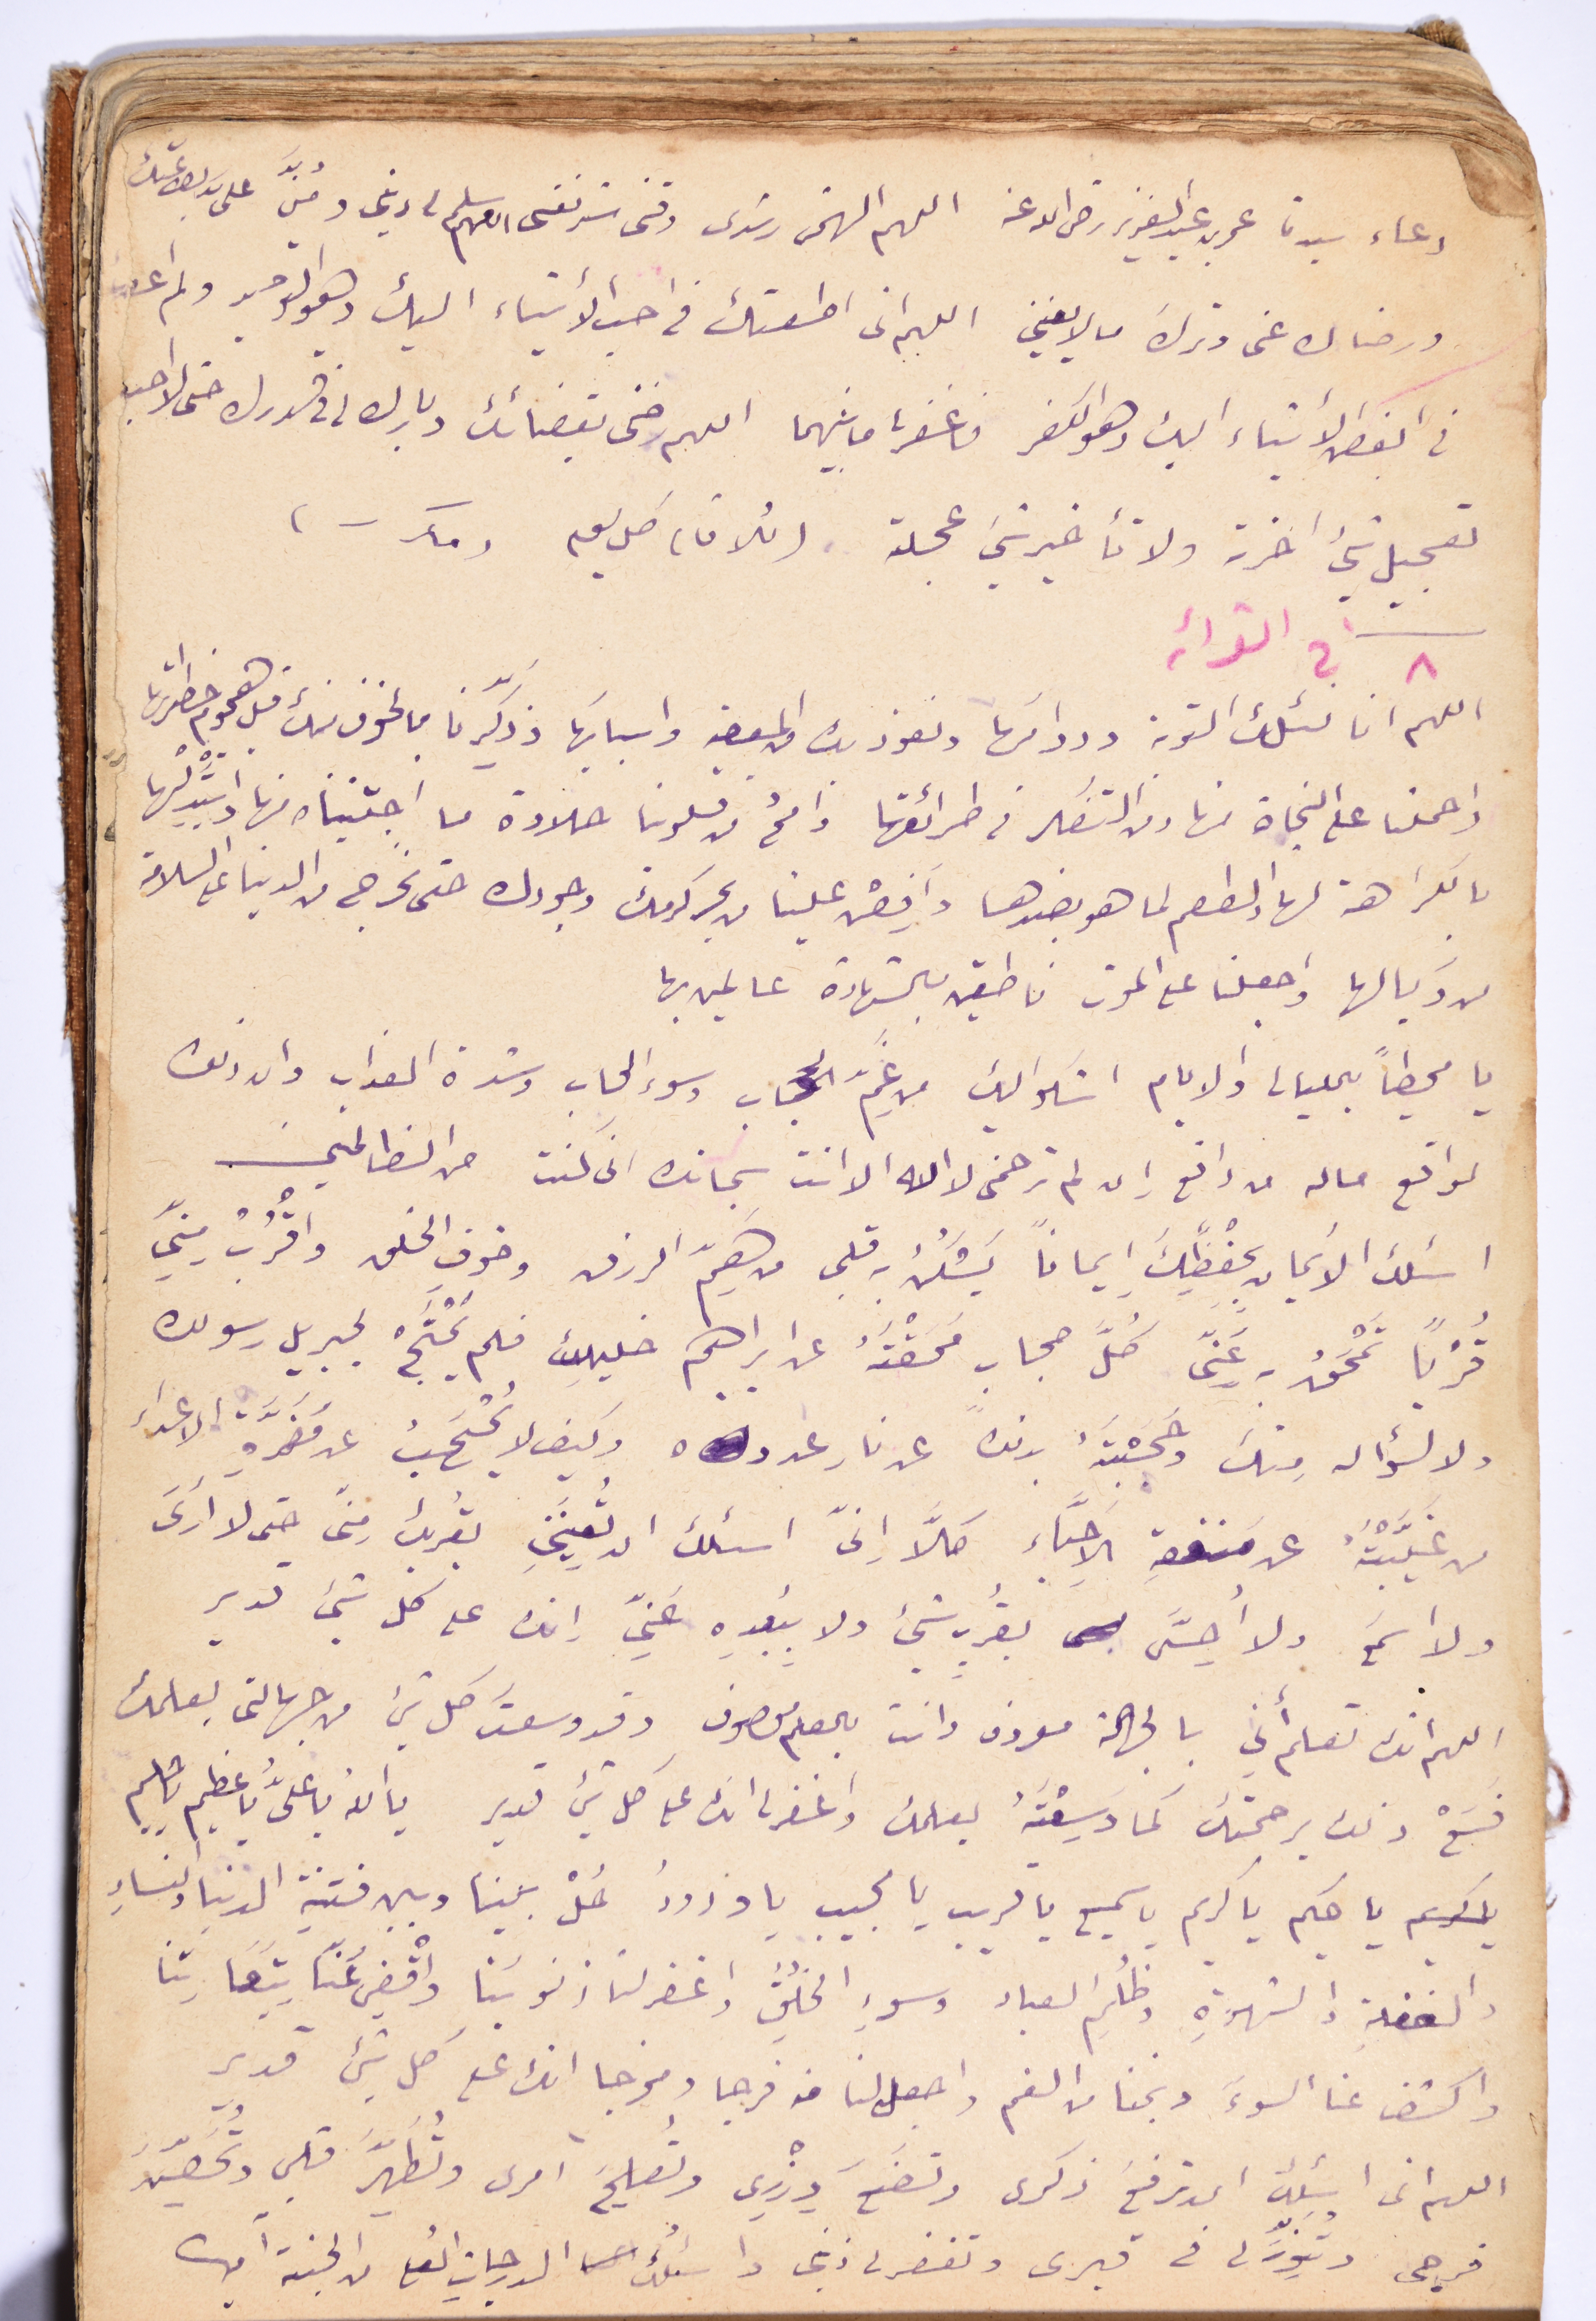 دعاء سيدنا عمر بن عبد العزيز رضى الله عنه اللهم الهمنى رشدى وقنى شر نفسى اللهم سلم لى دينى ومُنَّ على
ورضاك عنى وترك ما لا يعنينى اللهم انى اطعتك فى احب الأشياء اليك وهو التوحيد ولم اعصك
فى ابغض الأشياء اليك وهو الكفر فاغفر لى ما بينهما اللهم رضنى بقضائك وبارك لى فى قدرك حتى لا احب
تعجيل شئ اخرته ولا تأخير شئ عجلته (ثلاثا) كل يوم
٨
اللهم انا نسئلك التوبة ودوامها ونعوذ بك من المعصية واسبابها وذكِّرنا بالخوف منك قبل هجوم خطراتها
واحملنا على النجاة منها ومن التفكر فى طرائقها وامحُ من قلوبنا حلاوة ما اجتنيناه منها واستبدلها
بالكراهة لها والطعم لما هو بضدها وَأفِضْ علينا من بحر كرمك وجودك حتى نخرج من الدنيا على السلامة
من وَبالها واجعلنا عند الموت ناطقين بالشهادة عالمين بها
يا محيطاً بالليالى والايام اشكو اليك من غمّ الحجاب وسوء الحساب وشدة العذاب وان ذلك
لواقع ماله من دافع اِن لم ترحمنى لا اله الا انت سبحانك انى كنت من الظالمين
اسئلك الايمان بحفظِكَ اِيماناً يَسْكُنُ به قلبى من هَمِّ الرزق وخوفِ الخلق واقْرُبْ مِنّى
قُرْباً تَمْحَقُ به عَنّى كُلَّ حجابٍ مَحَقْتَهُ عن ابراهيم خليلِك فلم يَحْتَجْ لجبريل رسولك
ولا لسؤاله مِنك وَحَجَبْتَهُ بذلك عن نار عدوه وكيف لا يُحْجَبُ عن مَضَرَّةِ الاعداء
من غَيَّبْتَهُ عن منفعةِ الاَحِبَّاء كلَّا اِنّى اسئلك ان تُغيِّبَنى بقُربك مِنّى حتى لا أرَى
ولا اسمَعَ ولا أُحِسَّ بقُربِ شئ ولا ببُعدِهِ عَنِّى اِنك على كل شئ قدير
اللهم انك تعلم أنّى بالجهالة معروف وانت بالعلم موصوف وقد وسعتَ كل شئ من جهالتى بعلمك
فَسَعْ ذلك برحمتك كما وَسِعْتَهُ بعلمك واغفر لى انك على كل شئ قدير يا اللهُ يا علىُّ يا عظيم يا حليم
يا حكيم يا كريم يا سميع يا قريب يا مجيب يا ودودُ حُلْ بيننا وبين فتنةِ الدنيا والنساءِ
والغفلةِ والشهوةِ وظُلْمِ العباد وسوءِ الخُلُقِ واغفر لنا ذنوبنا واقْضِ عَنَّا تبعاتِنا
واكشف عنا السوءَ ونجنا من الغم واجعل لنا منه فرجا ومخرجا انك على كل شئ قدير
اللهم انى اسئلك ان ترفعَ ذكرى وتضعَ وِزْرِى وتُصلِحَ امرى وتُطَهِّرَ قلبى وتُحَصِّنَ
فرجى وتُنَوِّرَ لى فى قبرى وتغفر لى ذنبى واسئلك الدرجاتِ العُلى من الجنة آمين